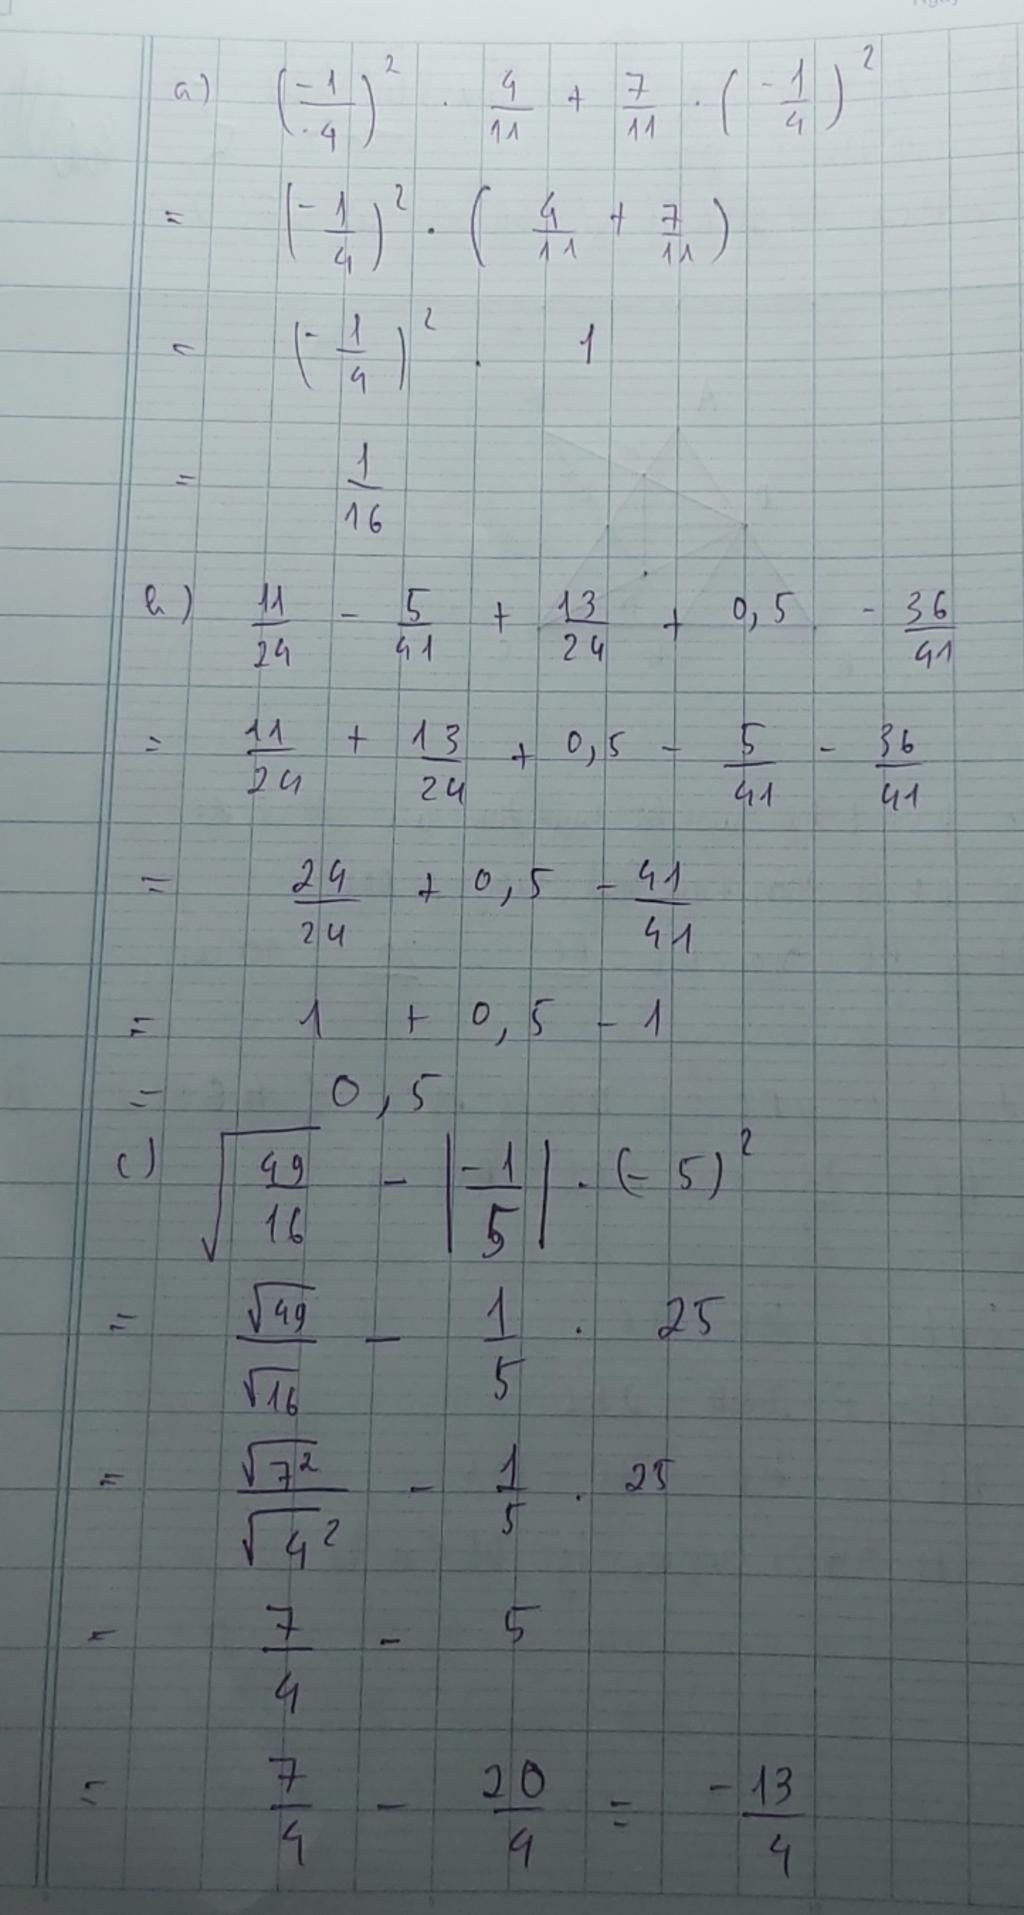 a) (-1/4)² . 4/11 + 7/11 . (-1/4)²
= (-1/4)² . (4/11 + 7/11)
= (-1/4)² . 1
= 1/16
b) 11/24 - 5/41 + 13/24 + 0,5 - 36/41
= 11/24 + 13/24 + 0,5 - 5/41 - 36/41
= 24/24 + 0,5 - 41/41
= 1 + 0,5 - 1
= 0,5
c) √(49/16) - |-1/5| . (-5)²
= √49/√16 - 1/5 . 25
= √7²/√4² - 1/5 . 25
= 7/4 - 5
= 7/4 - 20/4 = -13/4